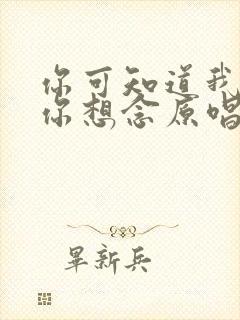 你可知道我
你想念原唱
畢新兵